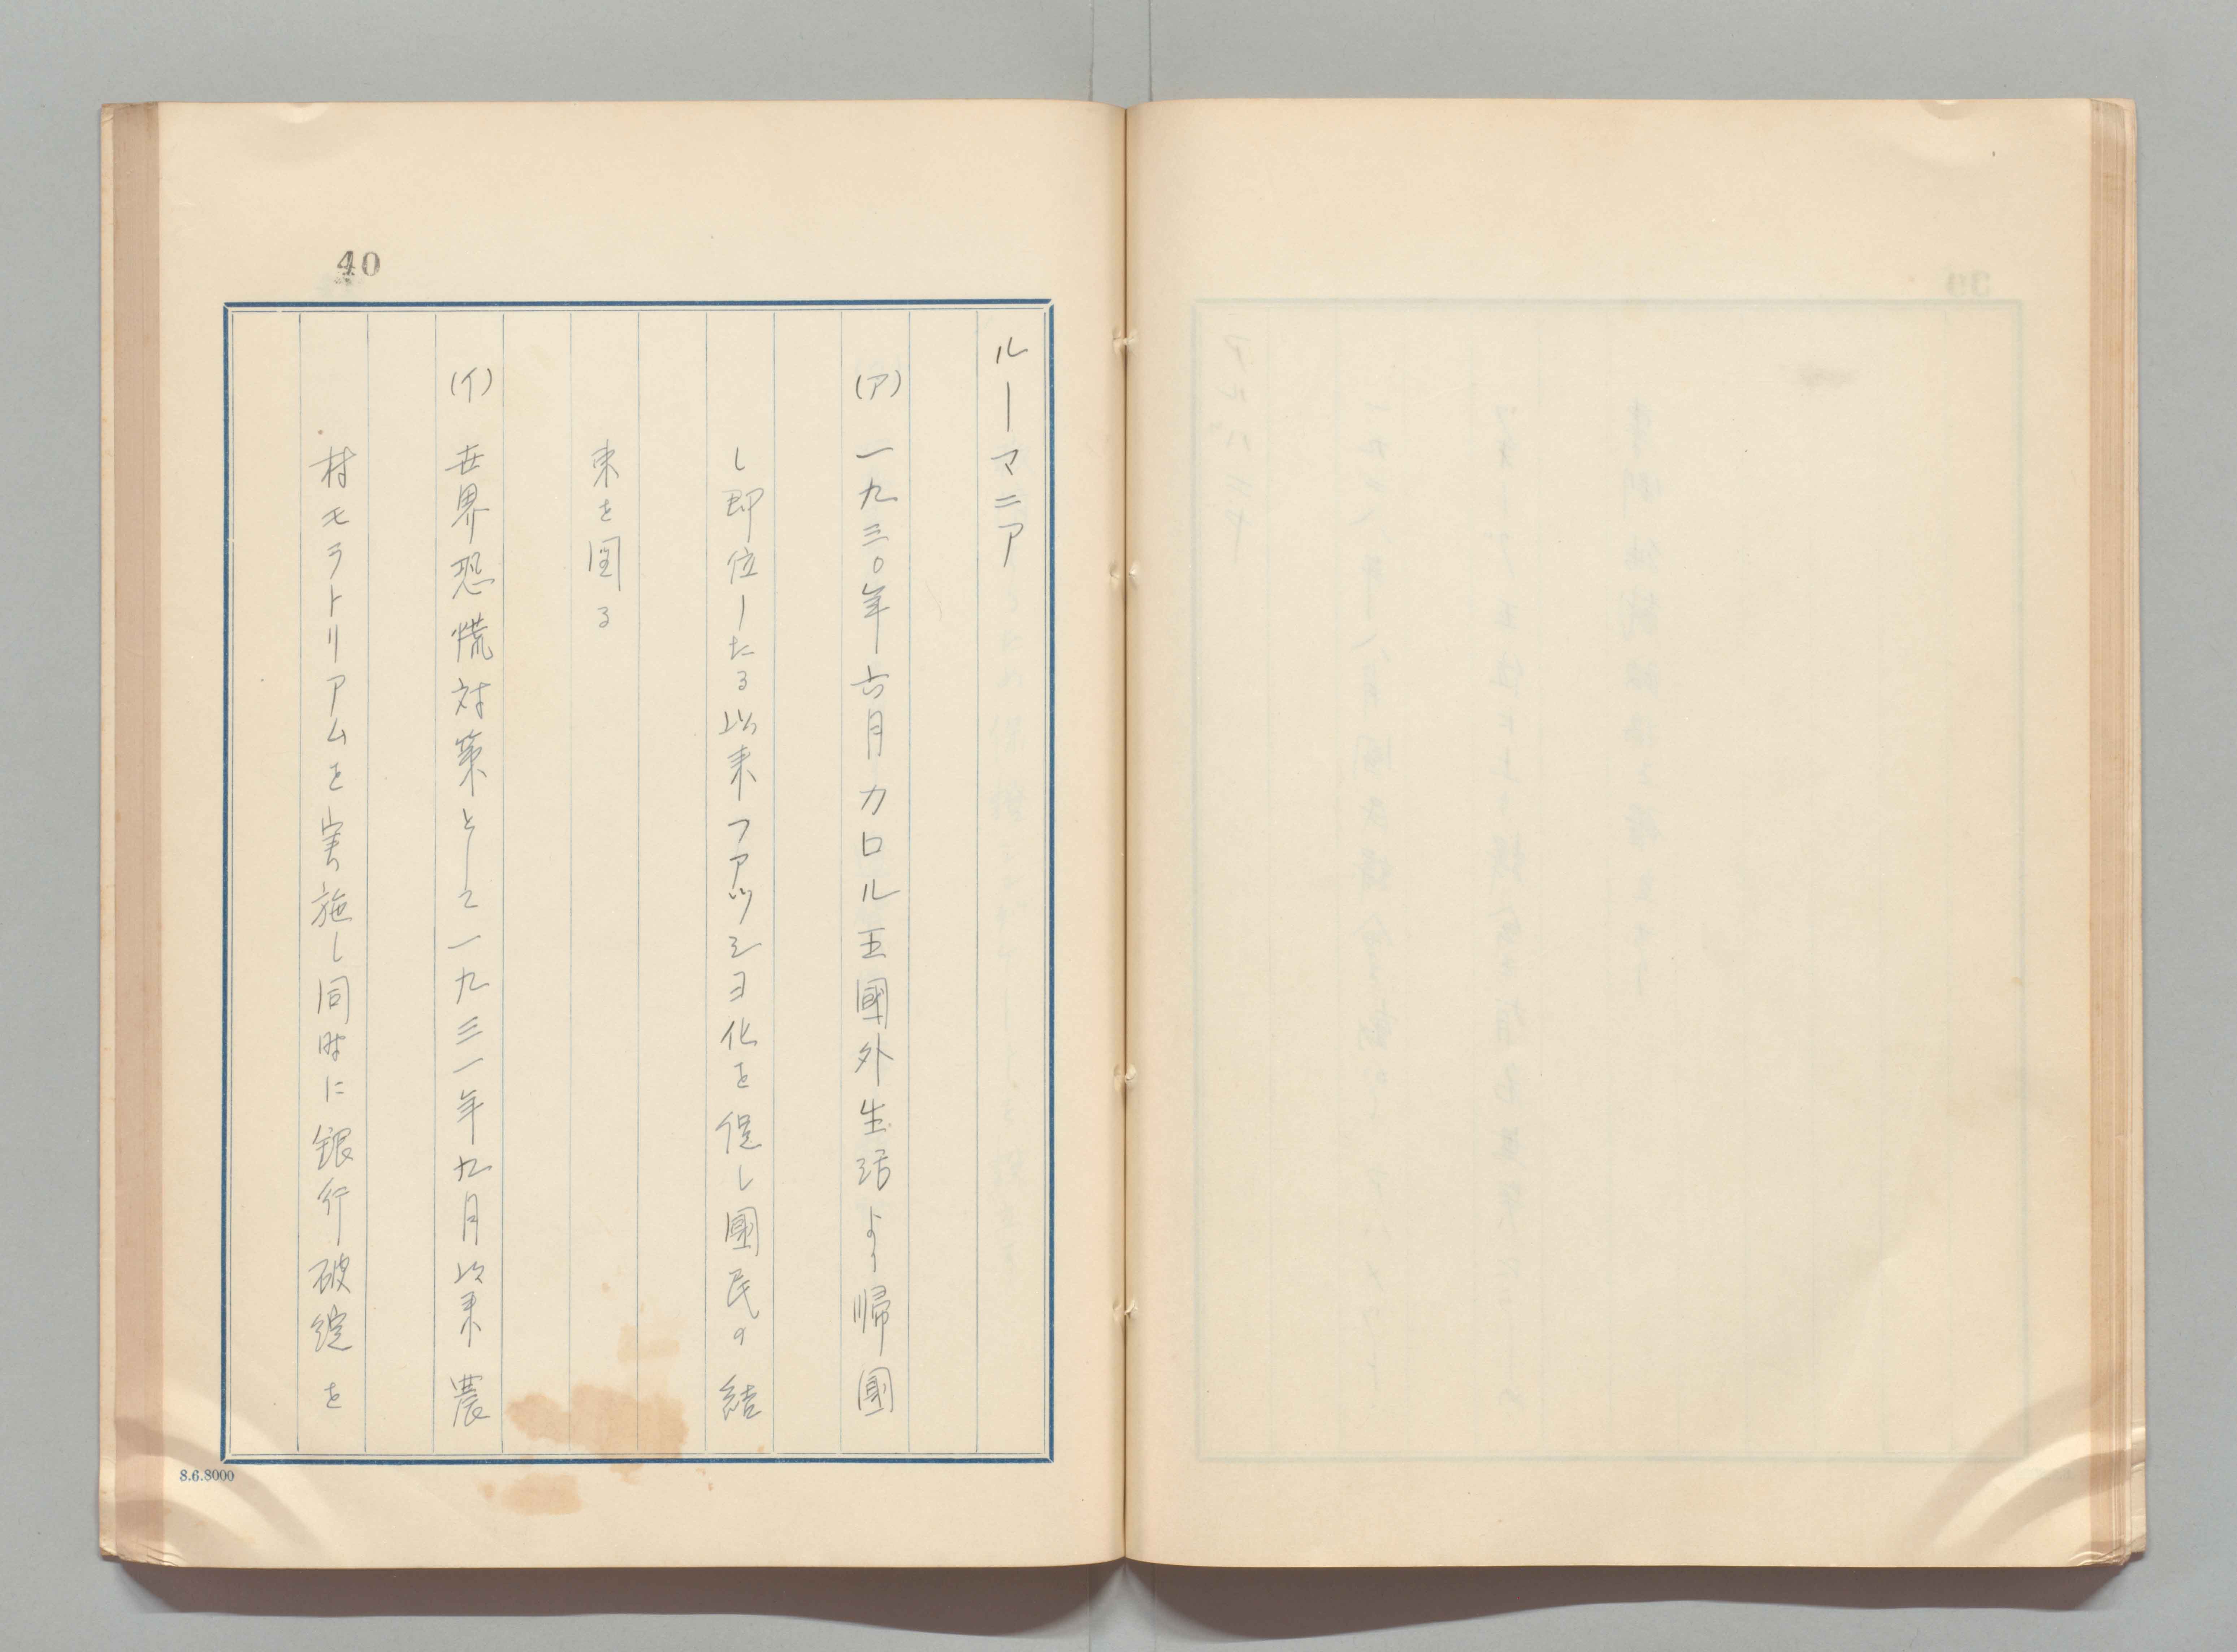 40
ルーマニア
(ア) 一九三〇年六月カロル王國外生活より帰國
し即位したる以来フアツシヨ化を促し國民の結
束を図る
(イ) 世界恐慌対策として一九三一年九月以来農
村モラトリアムを実施し同時に銀行破綻を
8.6.8000